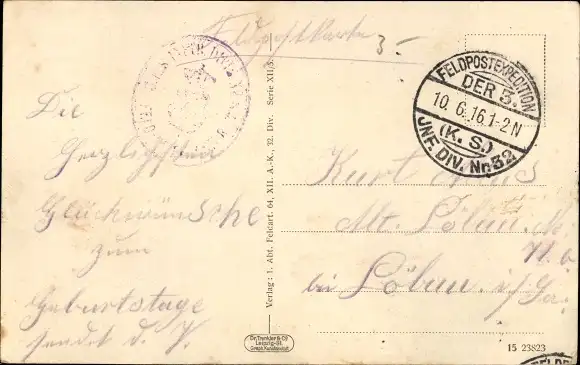 Feldpostkarte
Die
Herzlichsten
Glückwünsche
zum
Geburtstage
sendet d. V.
FELDPOSTEXPEDITION
DER 3.
10. 6. 16. 1-2 N
(K. S.)
JNF. DIV. Nr. 32
Kurt
Alt Löbau No
bei Löbau i/Sa.
Verlag: 1. Abt. Feldart. 64, XII. A.-K. 32. Div. Serie XII,3.
Dr. Trenkler & Co
Leipzig-St.
15 23823
FELDP